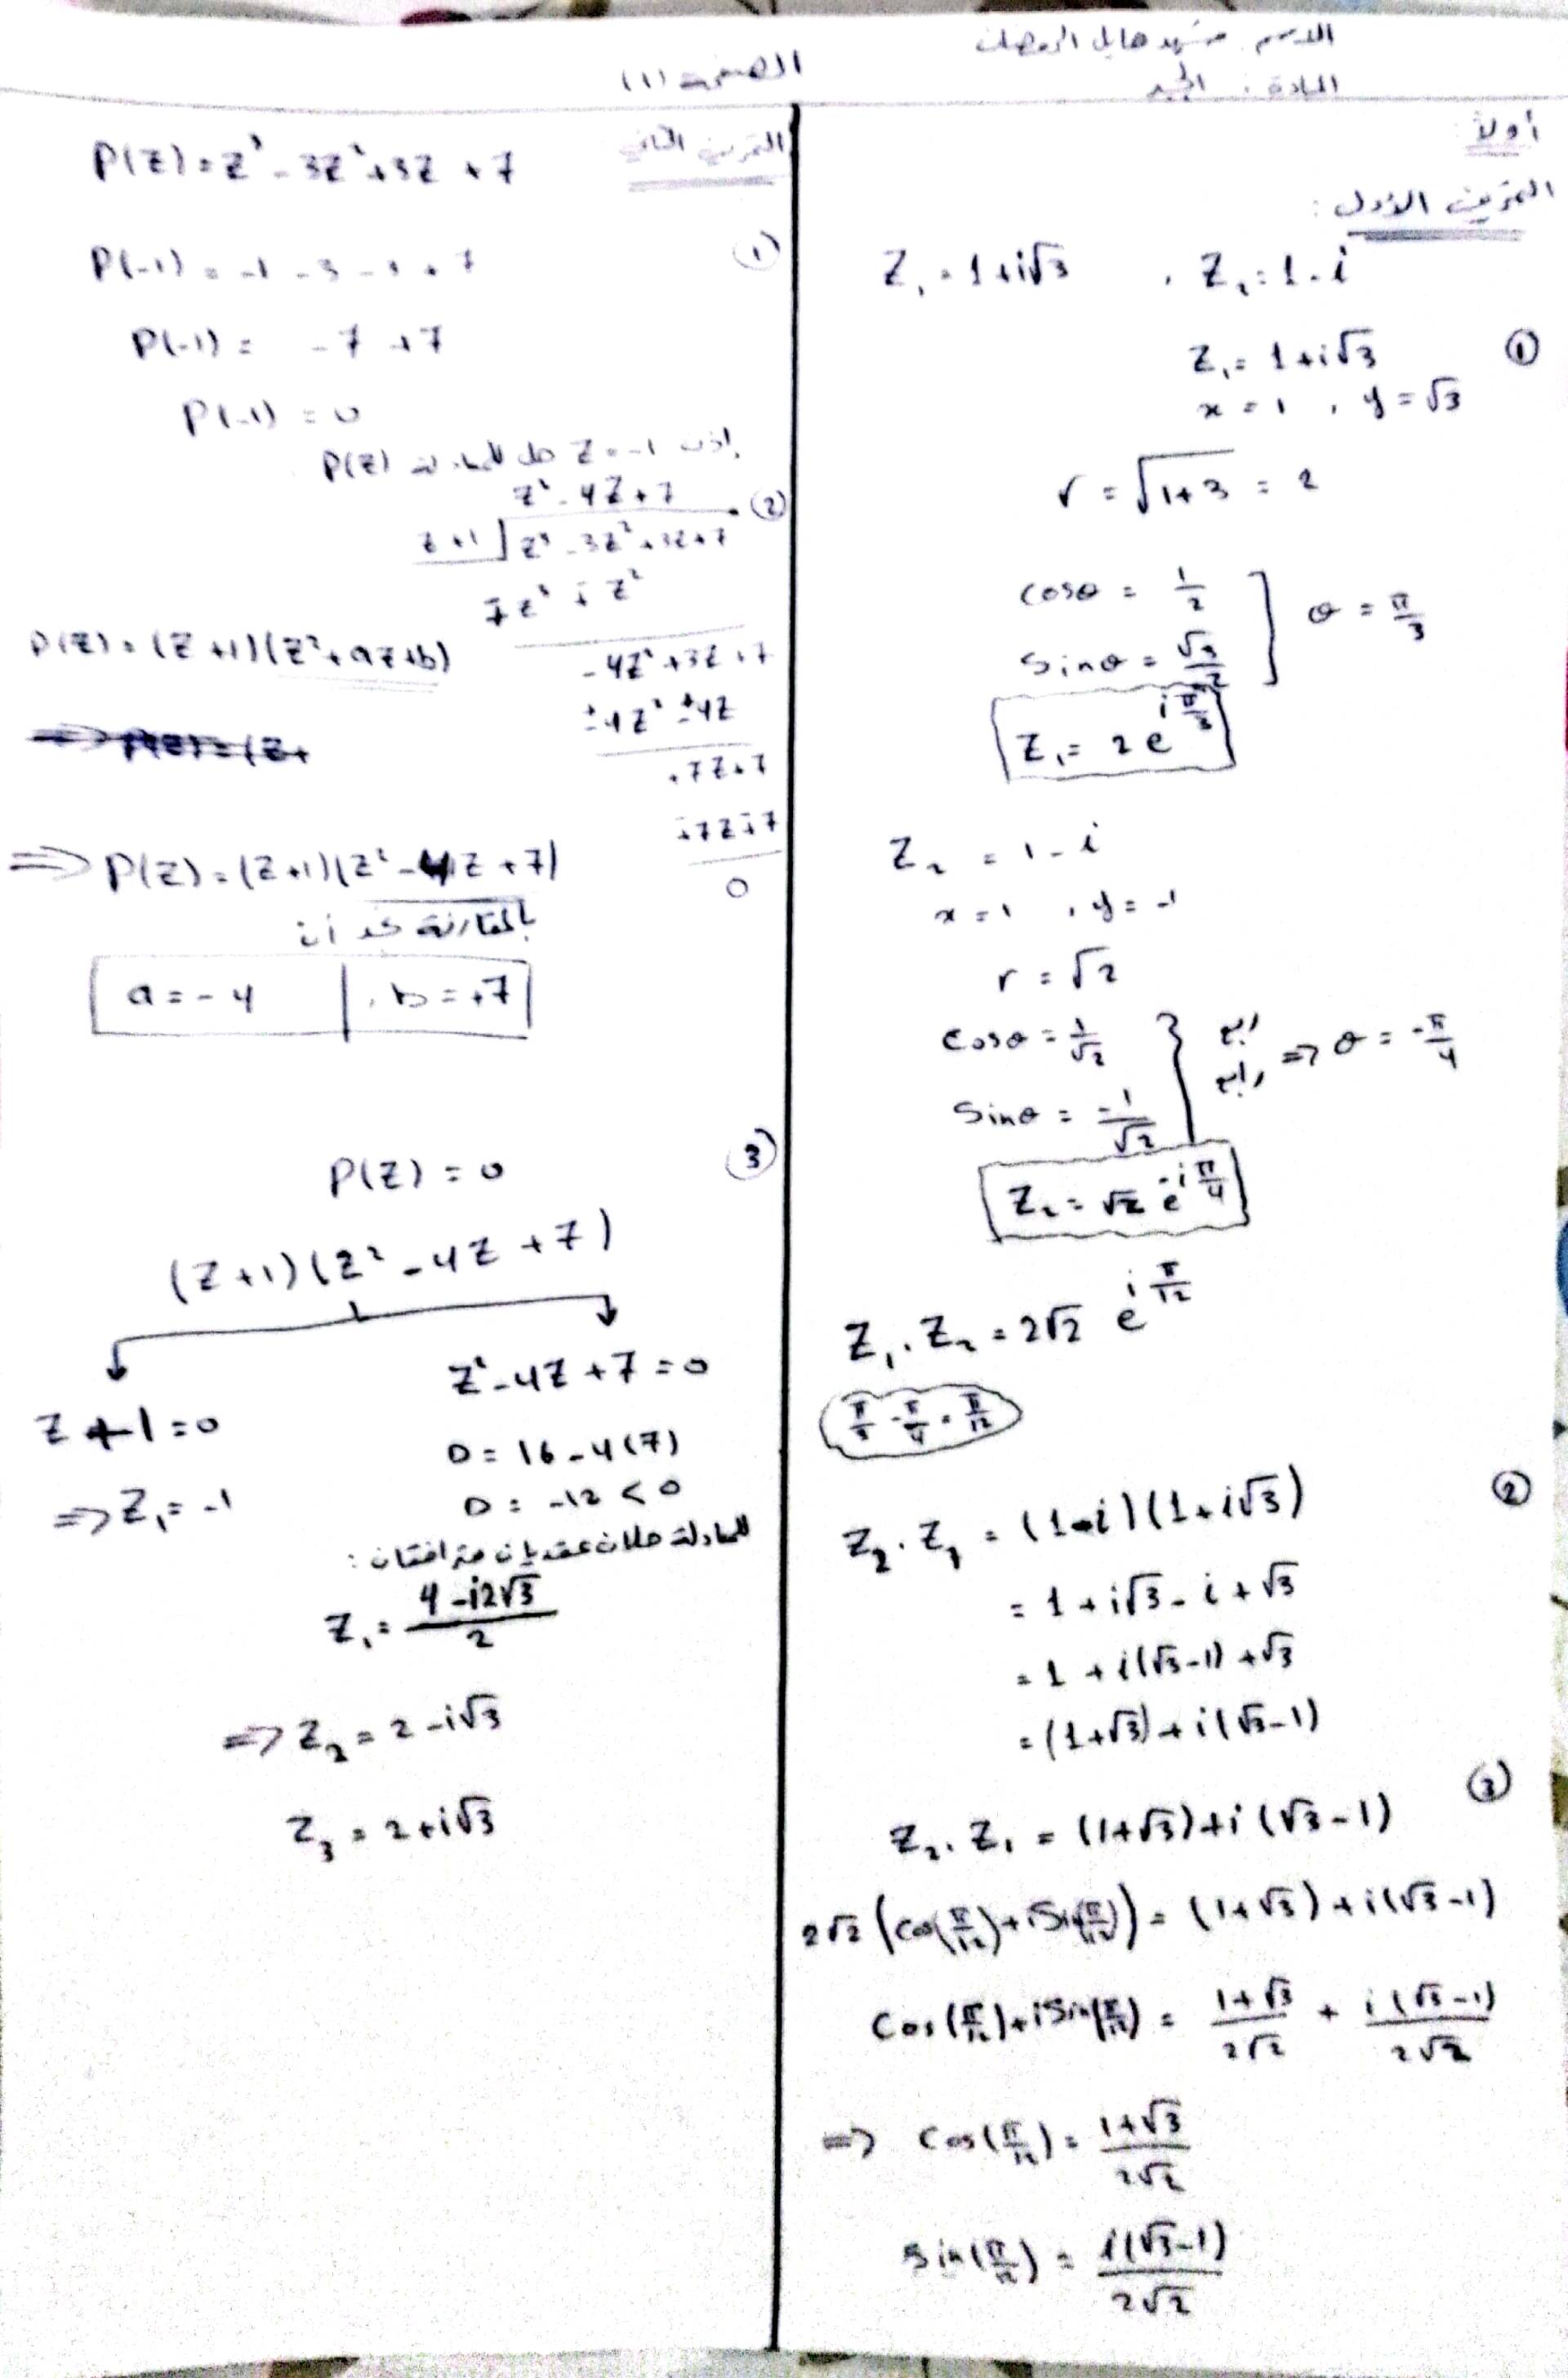 الاسم: شهد هايل
المادة: الجبر
الصفحة (1)
أولاً:
التمرين الأول:
Z₁ = 1+i√3 , Z₂ = 1-i
①
Z₁ = 1+i√3
x = 1 , y = √3
r = √(1+3) = 2
cosθ = 1/2
sinθ = √3/2
} θ = π/3
Z₁ = 2e^(iπ/3)
Z₂ = 1-i
x = 1 , y = -1
r = √2
cosθ = 1/√2
sinθ = -1/√2
} ربع رابع ⇒ θ = -π/4
Z₂ = √2 e^(-iπ/4)
Z₁.Z₂ = 2√2 e^(iπ/12)
π/3 - π/4 = π/12
②
Z₂.Z₁ = (1-i)(1+i√3)
= 1+i√3-i+√3
= 1+i(√3-1)+√3
= (1+√3)+i(√3-1)
③
Z₂.Z₁ = (1+√3)+i(√3-1)
2√2(cos(π/12)+iSin(π/12)) = (1+√3)+i(√3-1)
Cos(π/12)+iSin(π/12) = (1+√3)/(2√2) + i(√3-1)/(2√2)
⇒ Cos(π/12) = (1+√3)/(2√2)
Sin(π/12) = i(√3-1)/(2√2)
التمرين الثاني
P(Z) = Z³-3Z²+3Z+7
①
P(-1) = -1-3-3+7
P(-1) = -7+7
P(-1) = 0
إذن Z=-1 حل للمعادلة P(Z)
②
Z²-4Z+7
Z+1 | Z³-3Z²+3Z+7
∓Z³∓Z²
P(Z) = (Z+1)(Z²+aZ+b)
-4Z²+3Z+7
±4Z²±4Z
+7Z+7
∓7Z∓7
0
⇒ P(Z) = (Z+1)(Z²-4Z+7)
بالمقارنة نجد أن
a = -4 , b = +7
③
P(Z) = 0
(Z+1)(Z²-4Z+7)
Z+1=0
⇒ Z₁ = -1
Z²-4Z+7=0
D = 16-4(7)
D = -12 < 0
للمعادلة حلان عقديان مترافقان:
Z₁ = (4-i2√3)/2
⇒ Z₂ = 2-i√3
Z₃ = 2+i√3